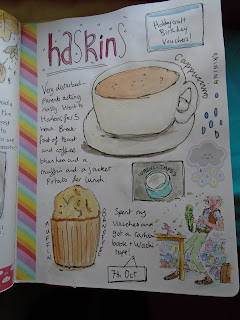 haskins
Hobbycraft
Birthday
Vouchers!
Cappuccino
Very disturbed -
parents acting
nasty. Went to
Haskins for 5
hour. Break-
fast of toast
and coffee
and a
muffin and a jacket
Potato for lunch
MUFFIN
Spent my
vouchers and
got a
book + Washi
tape!
7th Oct